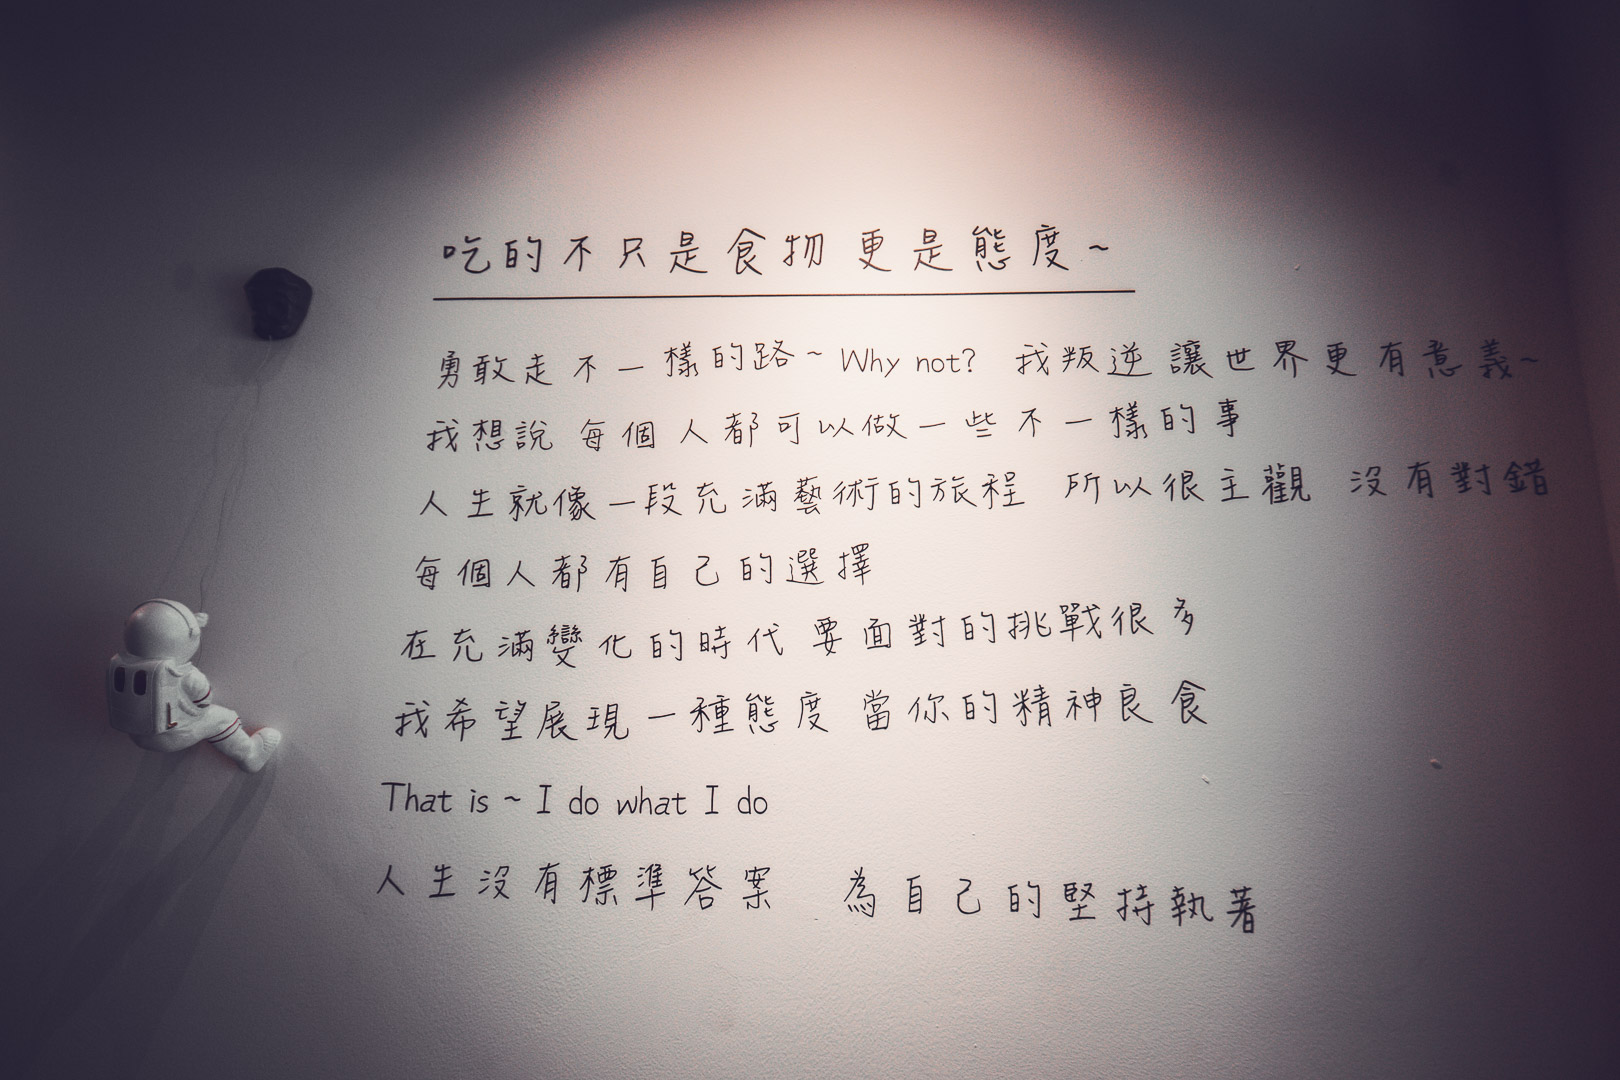 吃的不只是食物 更是態度~
勇敢走不一樣的路~Why not? 我叛逆讓世界更有意義~
我想說 每個人都可以做一些不一樣的事
人生就像一段充滿藝術的旅程 所以很主觀 沒有對錯
每個人都有自己的選擇
在充滿變化的時代 要面對的挑戰很多
我希望展現一種態度 當你的精神良食
That is ~ I do what I do
人生沒有標準答案 為自己的堅持執著